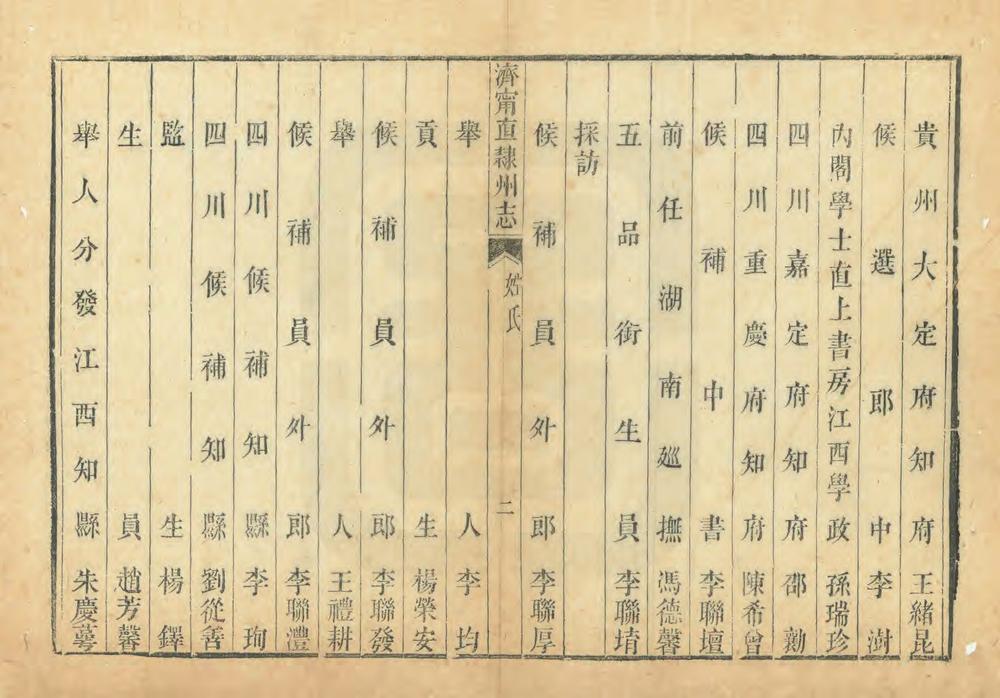 貴州大定府知府王緒昆
候選郎中李澍
內閣學士直上書房江西學政孫瑞珍
四川嘉定府知府邵勷
四川重慶府知府陳希曾
候補中書李聯壇
前任湖南廵撫馮德馨
五品銜生員李聯堉
採訪
候補員外郎李聯厚
濟甯直隸州志
姓氏
二
舉人李均
貢生楊榮安
候補員外郎李聯發
舉人王禮耕
候補員外郎李聯灃
四川候補知縣李珣
四川候補知縣劉從善
監生楊鐸
生員趙芳馨
舉人分發江西知縣朱慶萼